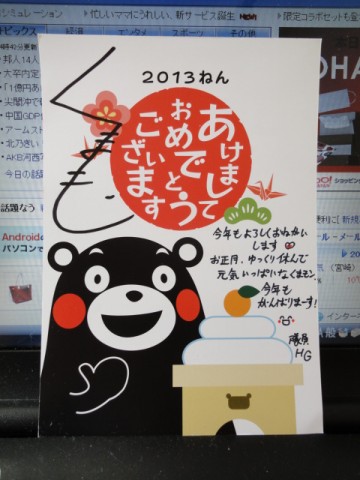 2013ねん
あけまして
おめでとう
ございます
くまモン
今年もよろしくおねがい
します
お正月、ゆっくり休んで
元気いっぱいなくまモン
今年も
がんばりまーす!
隊員
HG
シミュレーション
忙しいママにうれしい、新サービス誕生
限定コラボセットも
トピックス
経済
エンタメ
スポーツ
その他
邦人14人
大卒内定
「1億円あ
尖閣沖で
中国GDP
アームスト
北乃きい
AKB河西
今日の話題
話題なう
Android
パソコンで
ショッピング
ルール
(宮崎)